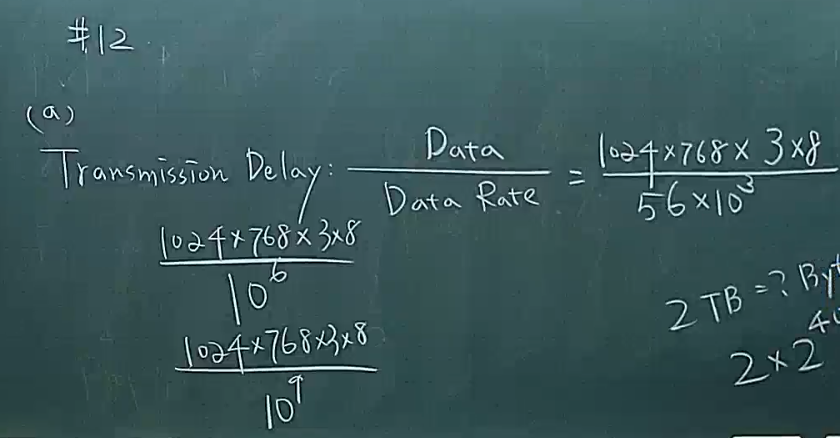 #12
(a)
Transmission Delay: Data / Data Rate = 1024×768×3×8 / 56×10³
1024×768×3×8 / 10⁶
1024×768×3×8 / 10⁹
2 TB =? Byt
2×2⁴⁰